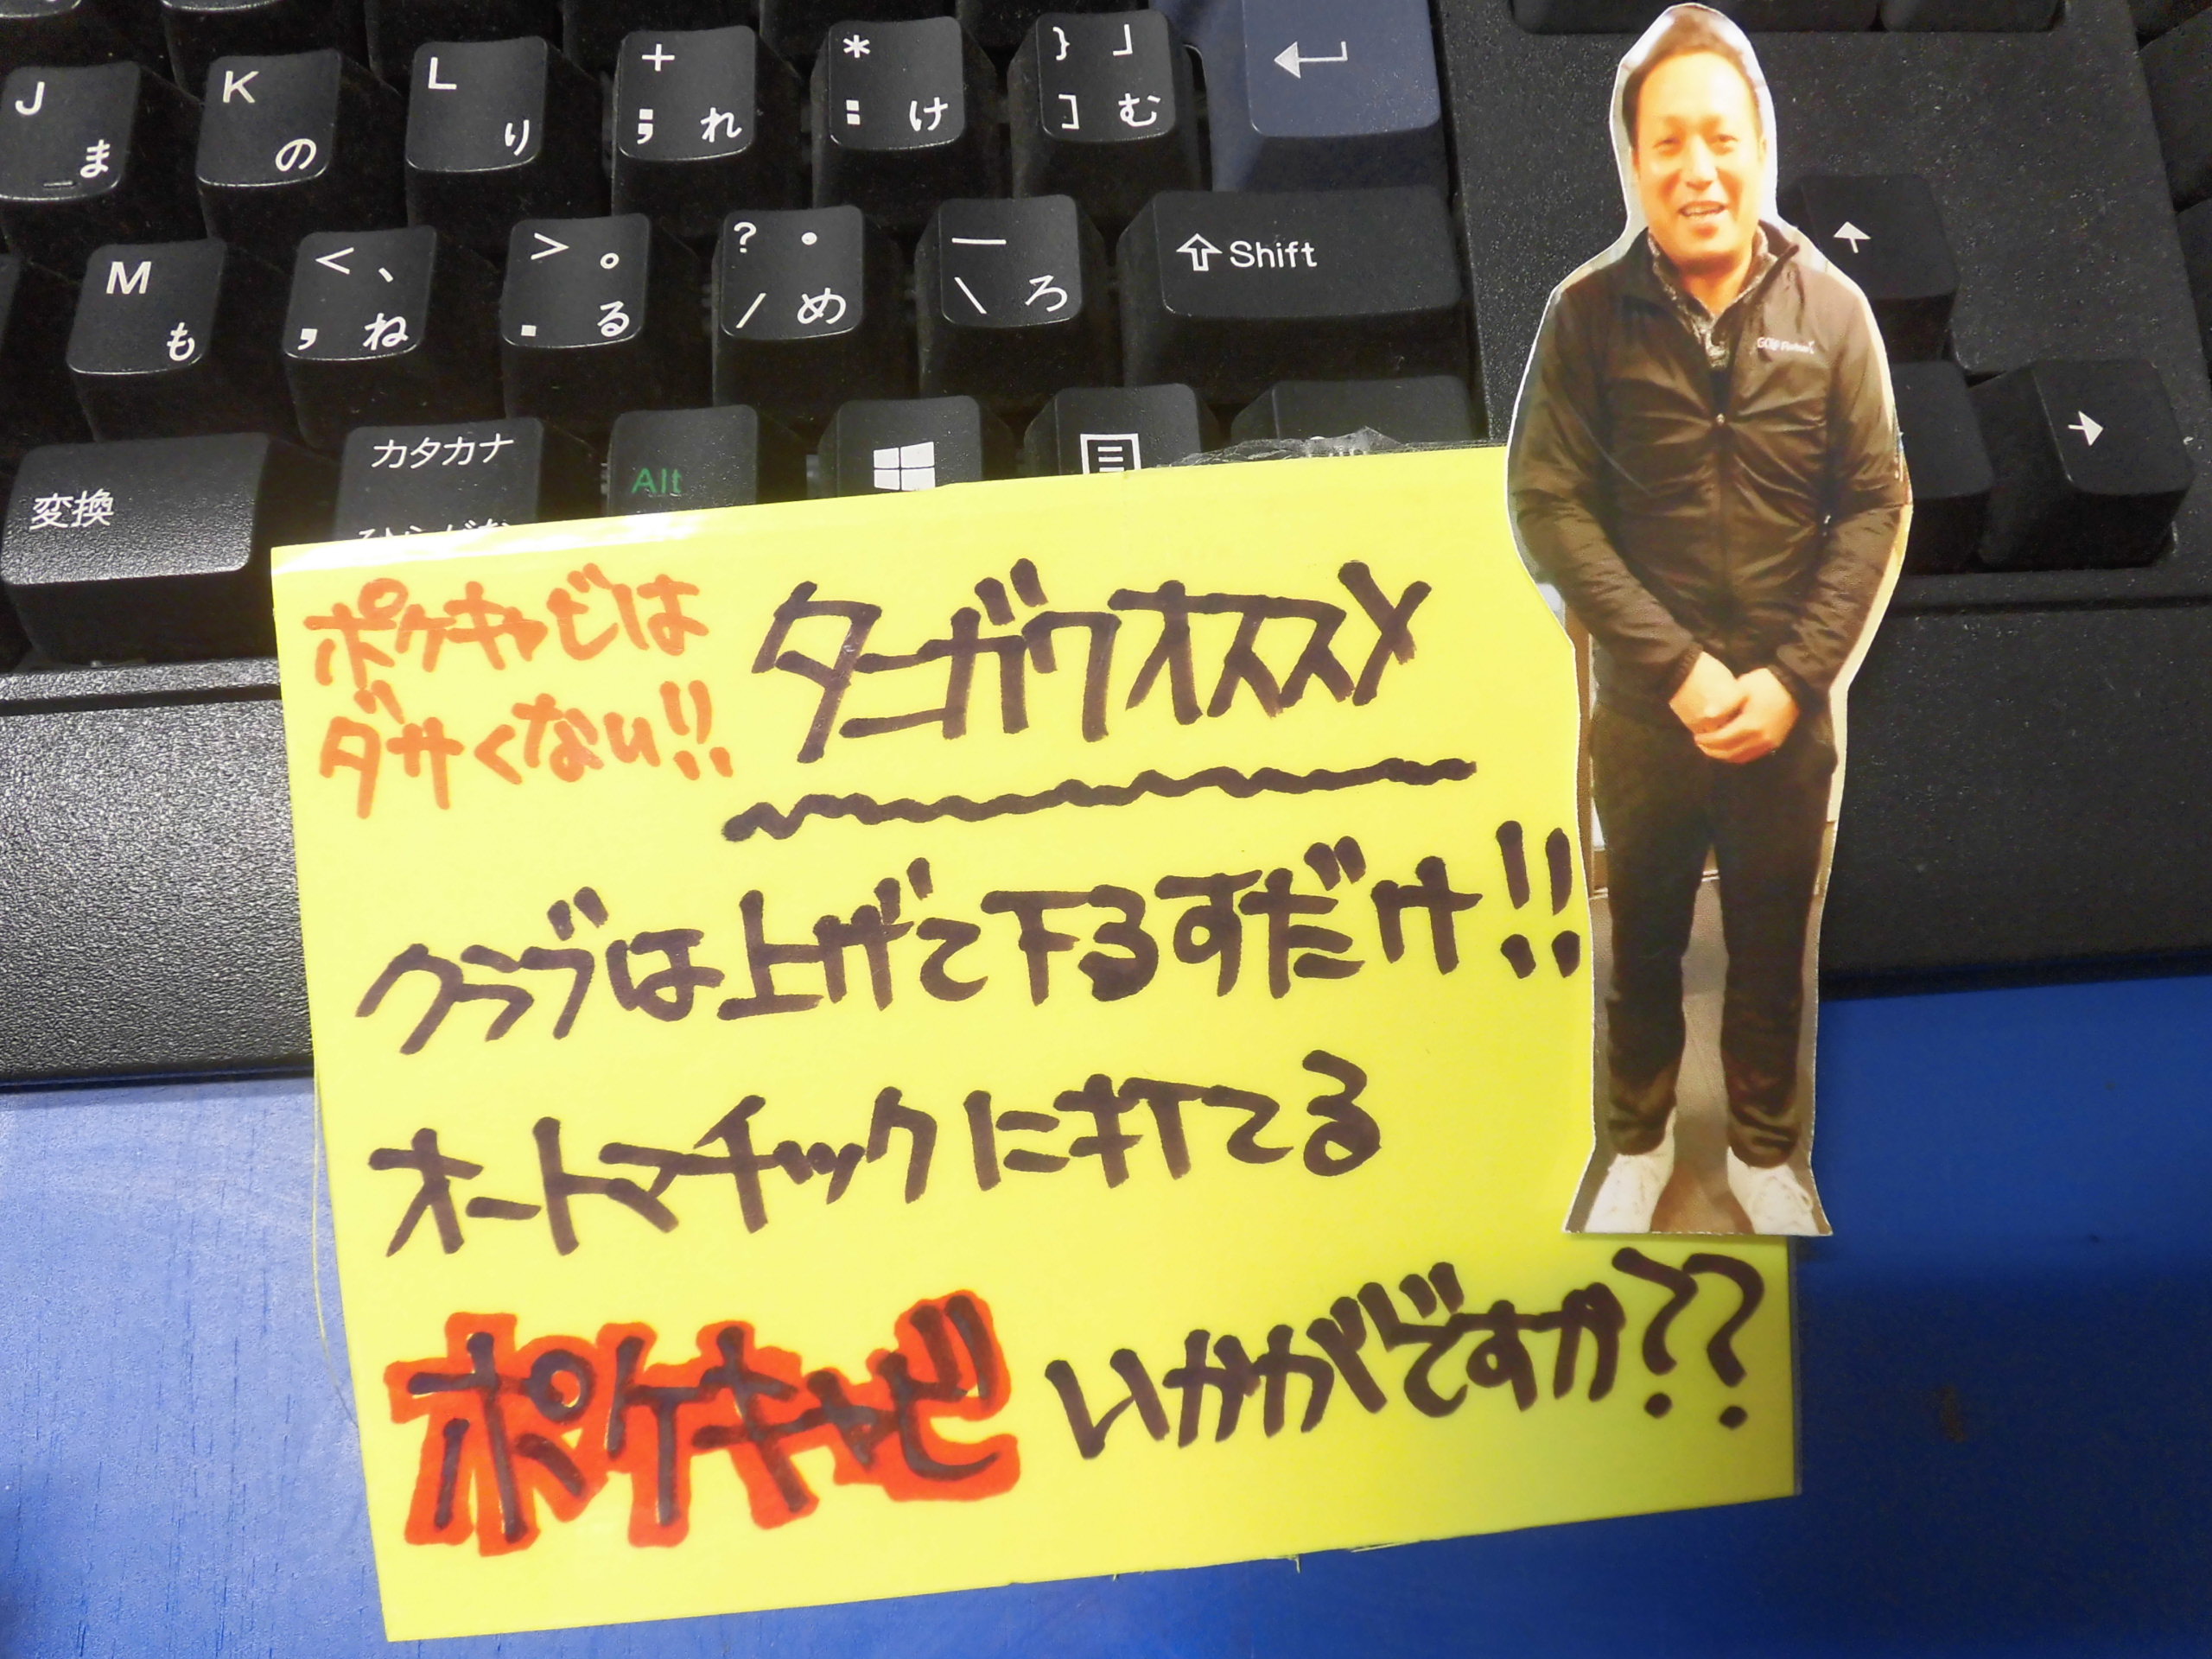 J
ま
K
の
L
り
+
; れ
*
: け
} 」
] む
M
も
< 、
, ね
> 。
. る
? ・
/ め
_
\ ろ
Shift
変換
カタカナ
Alt
ポケキャビは
ダサくない!!
タニガワオススメ
クラブは上げて下るすだけ!!
オートマチックに打てる
ポケキャビ いかがですか??